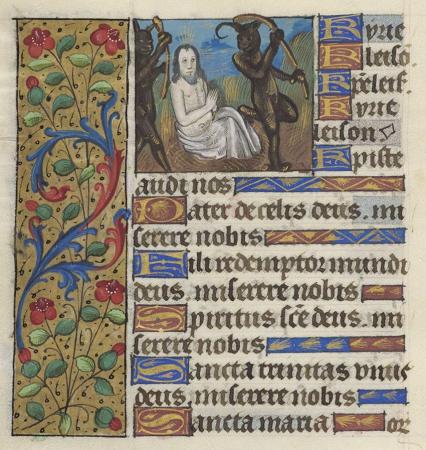 Kyrie
eleisō.
xp̄eleis.
Kyrie
leison
Xpiste
audi nos
Pater de celis deus. mi
serere nobis
Fili redemptor mundi
deus. miserere nobis
Spiritus sc̄e deus. mi
serere nobis
Sancta trinitas vnus
deus. miserere nobis
Sancta maria or